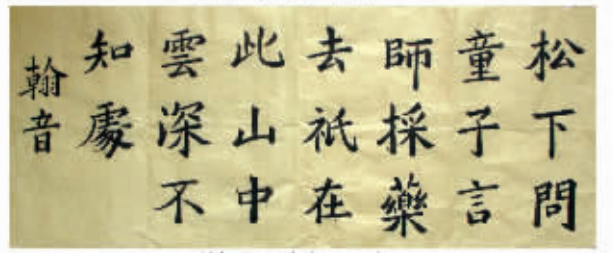 松下問
童子言
師採藥
去祇在
此山中
雲深不
知處
翰音